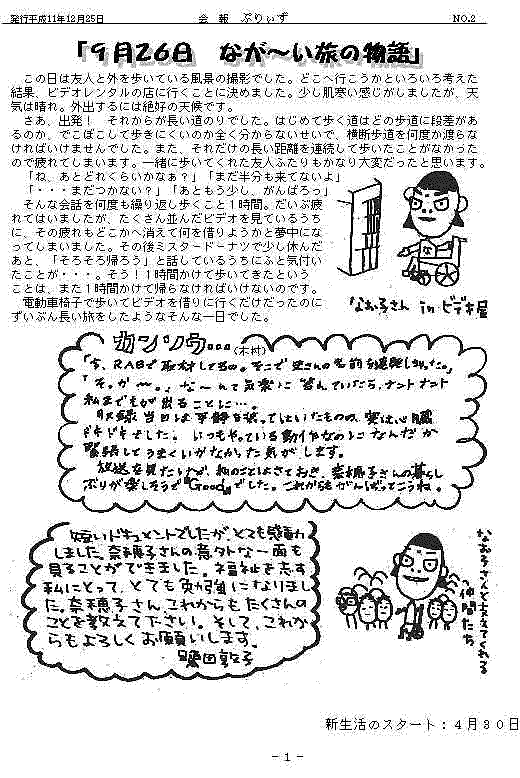 発行平成11年12月25日　会　報　ぷりぃず　NO.2
「9月26日　なが〜い旅の物語」
この日は友人と外を歩いている風景の撮影でした。どこへ行こうかといろいろ考えた
結果、ビデオレンタルの店に行くことに決めました。少し肌寒い感じがしましたが、天
気は晴れ。外出するには絶好の天候です。
さあ、出発！　それからが長い道のりでした。はじめて歩く道はどの歩道に段差があ
るのか、でこぼこして歩きにくいのか全く分からないせいで、横断歩道を何度か渡らな
ければいけませんでした。また、それだけの長い距離を連続して歩いたことがなかった
ので疲れてしまいます。一緒に歩いてくれた友人ふたりもかなり大変だったと思います。
「ね、あとどれくらいかなぁ？」「まだ半分も来てないよ」
「・・・まだつかない？」「あともう少し、がんばろっ」
そんな会話を何度も繰り返し歩くこと１時間。だいぶ疲
れてはいましたが、たくさん並んだビデオを見ているうち
に、その疲れもどこかへ消えて何を借りようかと夢中にな
ってしまいました。その後ミスタードーナツで少し休んだ
あと、「そろそろ帰ろう」と話しているうちにふと気付い
たことが・・・。そう！１時間かけて歩いてきたという
ことは、また１時間かけて帰らなければいけないのです。
電動車椅子で歩いてビデオを借りに行くだけだったのに
ずいぶん長い旅をしたようなそんな一日でした。
な
なお子さん in ビデオ屋
カンソウ...(木村)
「今、RABで取材してるの。そこで
「そっか〜。」な〜んて気楽に答えていたら、ナントナント
私までもが出ることに…。
収録当日は平静を装ってはいたものの、実は心臓
ドキドキでした。いつもやっている動作なのになんだか
緊張してうまくいかなかった気がします。
放送を見たけど、私のことはさておき、奈穂子さんの暮らし
ぶりが楽しそうで『Good』でした。これからもがんばってこうね。
短いドキュメントでしたが、とても感動
しました。奈穂子さんの意外な一面も
見ることができました。福祉を志す
私にとって、とても勉強になりまし
た。奈穂子さん、これからもたくさんの
ことを教えて下さい。そして、これか
らもよろしくお願いします。
田敦子
なお子さんと支えてくれる
仲間たち
新生活のスタート：４月３０日
- 1 -